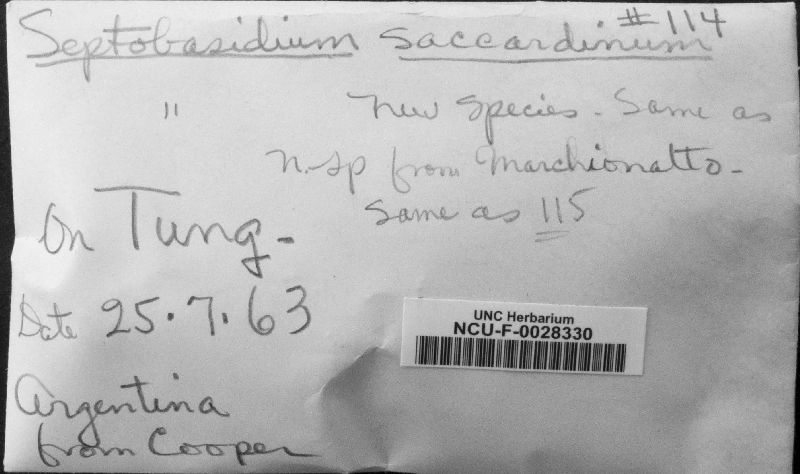 #114
Septobasidium saccardinum
" new species - Same as
n. sp from Marchionatto -
Same as 115
On Tung -
Date 25.7.63
UNC Herbarium
NCU-F-0028330
Argentina
from Cooper